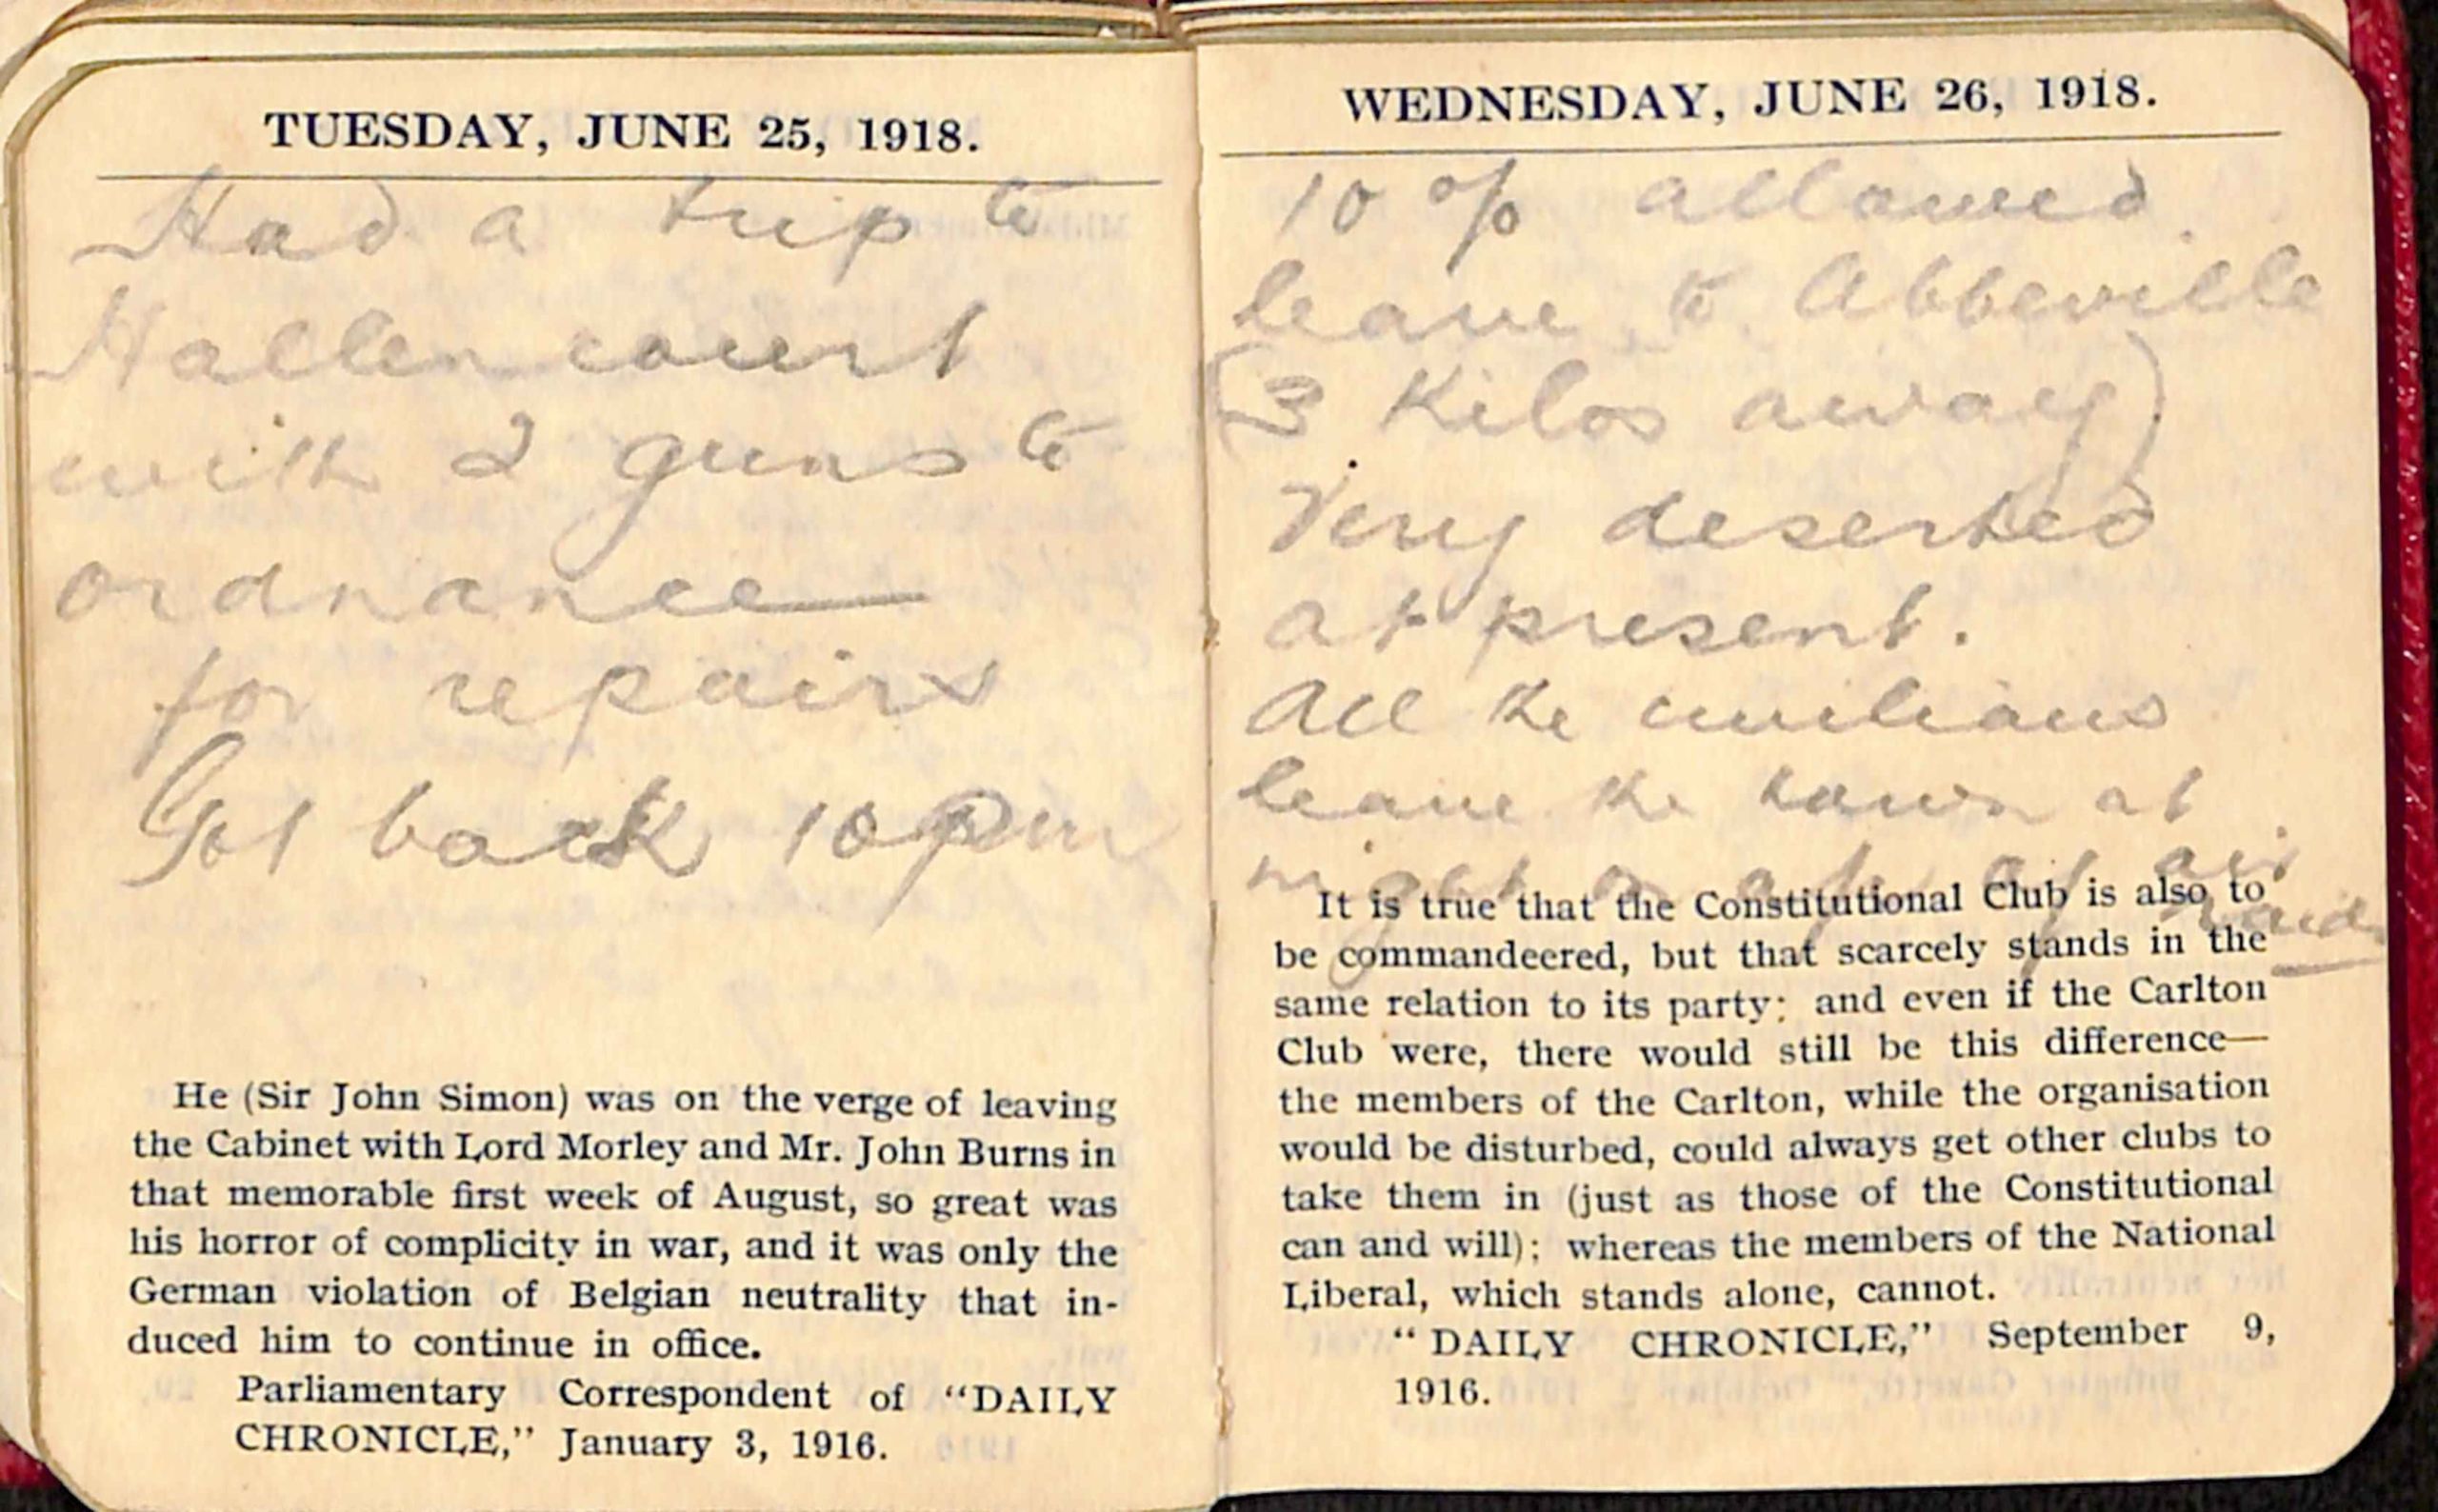 TUESDAY, JUNE 25, 1918.
Had a trip to
Hallencourt
with 2 guns to
ordnance
for repairs
Got back 10 pm
He (Sir John Simon) was on the verge of leaving
the Cabinet with Lord Morley and Mr. John Burns in
that memorable first week of August, so great was
his horror of complicity in war, and it was only the
German violation of Belgian neutrality that in-
duced him to continue in office.
Parliamentary Correspondent of "DAILY
CHRONICLE," January 3, 1916.
WEDNESDAY, JUNE 26, 1918.
10 % allowed
leave to Abbeville
(3 Kilos away)
Very deserted
at present.
All the civilians
leave the town at
night on a/c of air
raids
It is true that the Constitutional Club is also to
be commandeered, but that scarcely stands in the
same relation to its party; and even if the Carlton
Club were, there would still be this difference—
the members of the Carlton, while the organisation
would be disturbed, could always get other clubs to
take them in (just as those of the Constitutional
can and will); whereas the members of the National
Liberal, which stands alone, cannot.
"DAILY CHRONICLE," September 9,
1916.